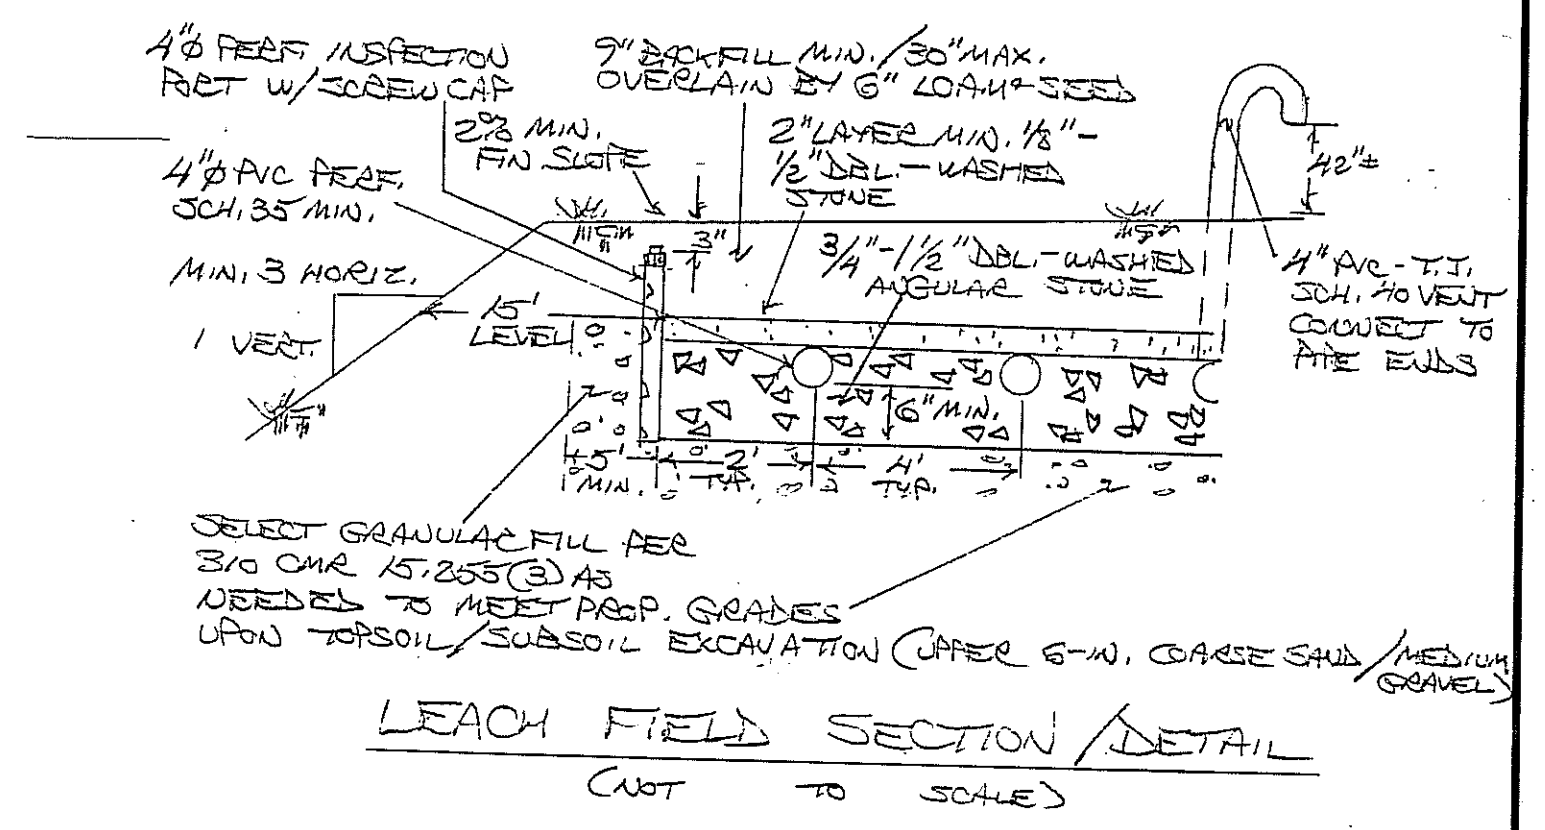 4"ø PERF. INSPECTION
PORT W/SCREW CAP
9" BACKFILL MIN./30" MAX.
OVERLAIN BY 6" LOAM & SEED
2% MIN.
FIN SLOPE
2" LAYER MIN. 1/8"-
1/2" DBL.-WASHED
STONE
42"±
4"ø PVC PERF.
SCH. 35 MIN.
3"
3/4"-1 1/2" DBL.-WASHED
ANGULAR STONE
4" PVC-T.J.
SCH. 40 VENT
CONNECT TO
PIPE ENDS
MIN. 3 HORIZ.
1 VERT.
15'
LEVEL
6" MIN.
5'
MIN.
2'
TYP.
4'
TYP.
SELECT GRANULAR FILL PER
310 CMR 15.255(3) AS
NEEDED TO MEET PROP. GRADES
UPON TOPSOIL/SUBSOIL EXCAVATION (UPPER 6-IN. COARSE SAND/MEDIUM
GRAVEL)
LEACH FIELD SECTION/DETAIL
(NOT TO SCALE)